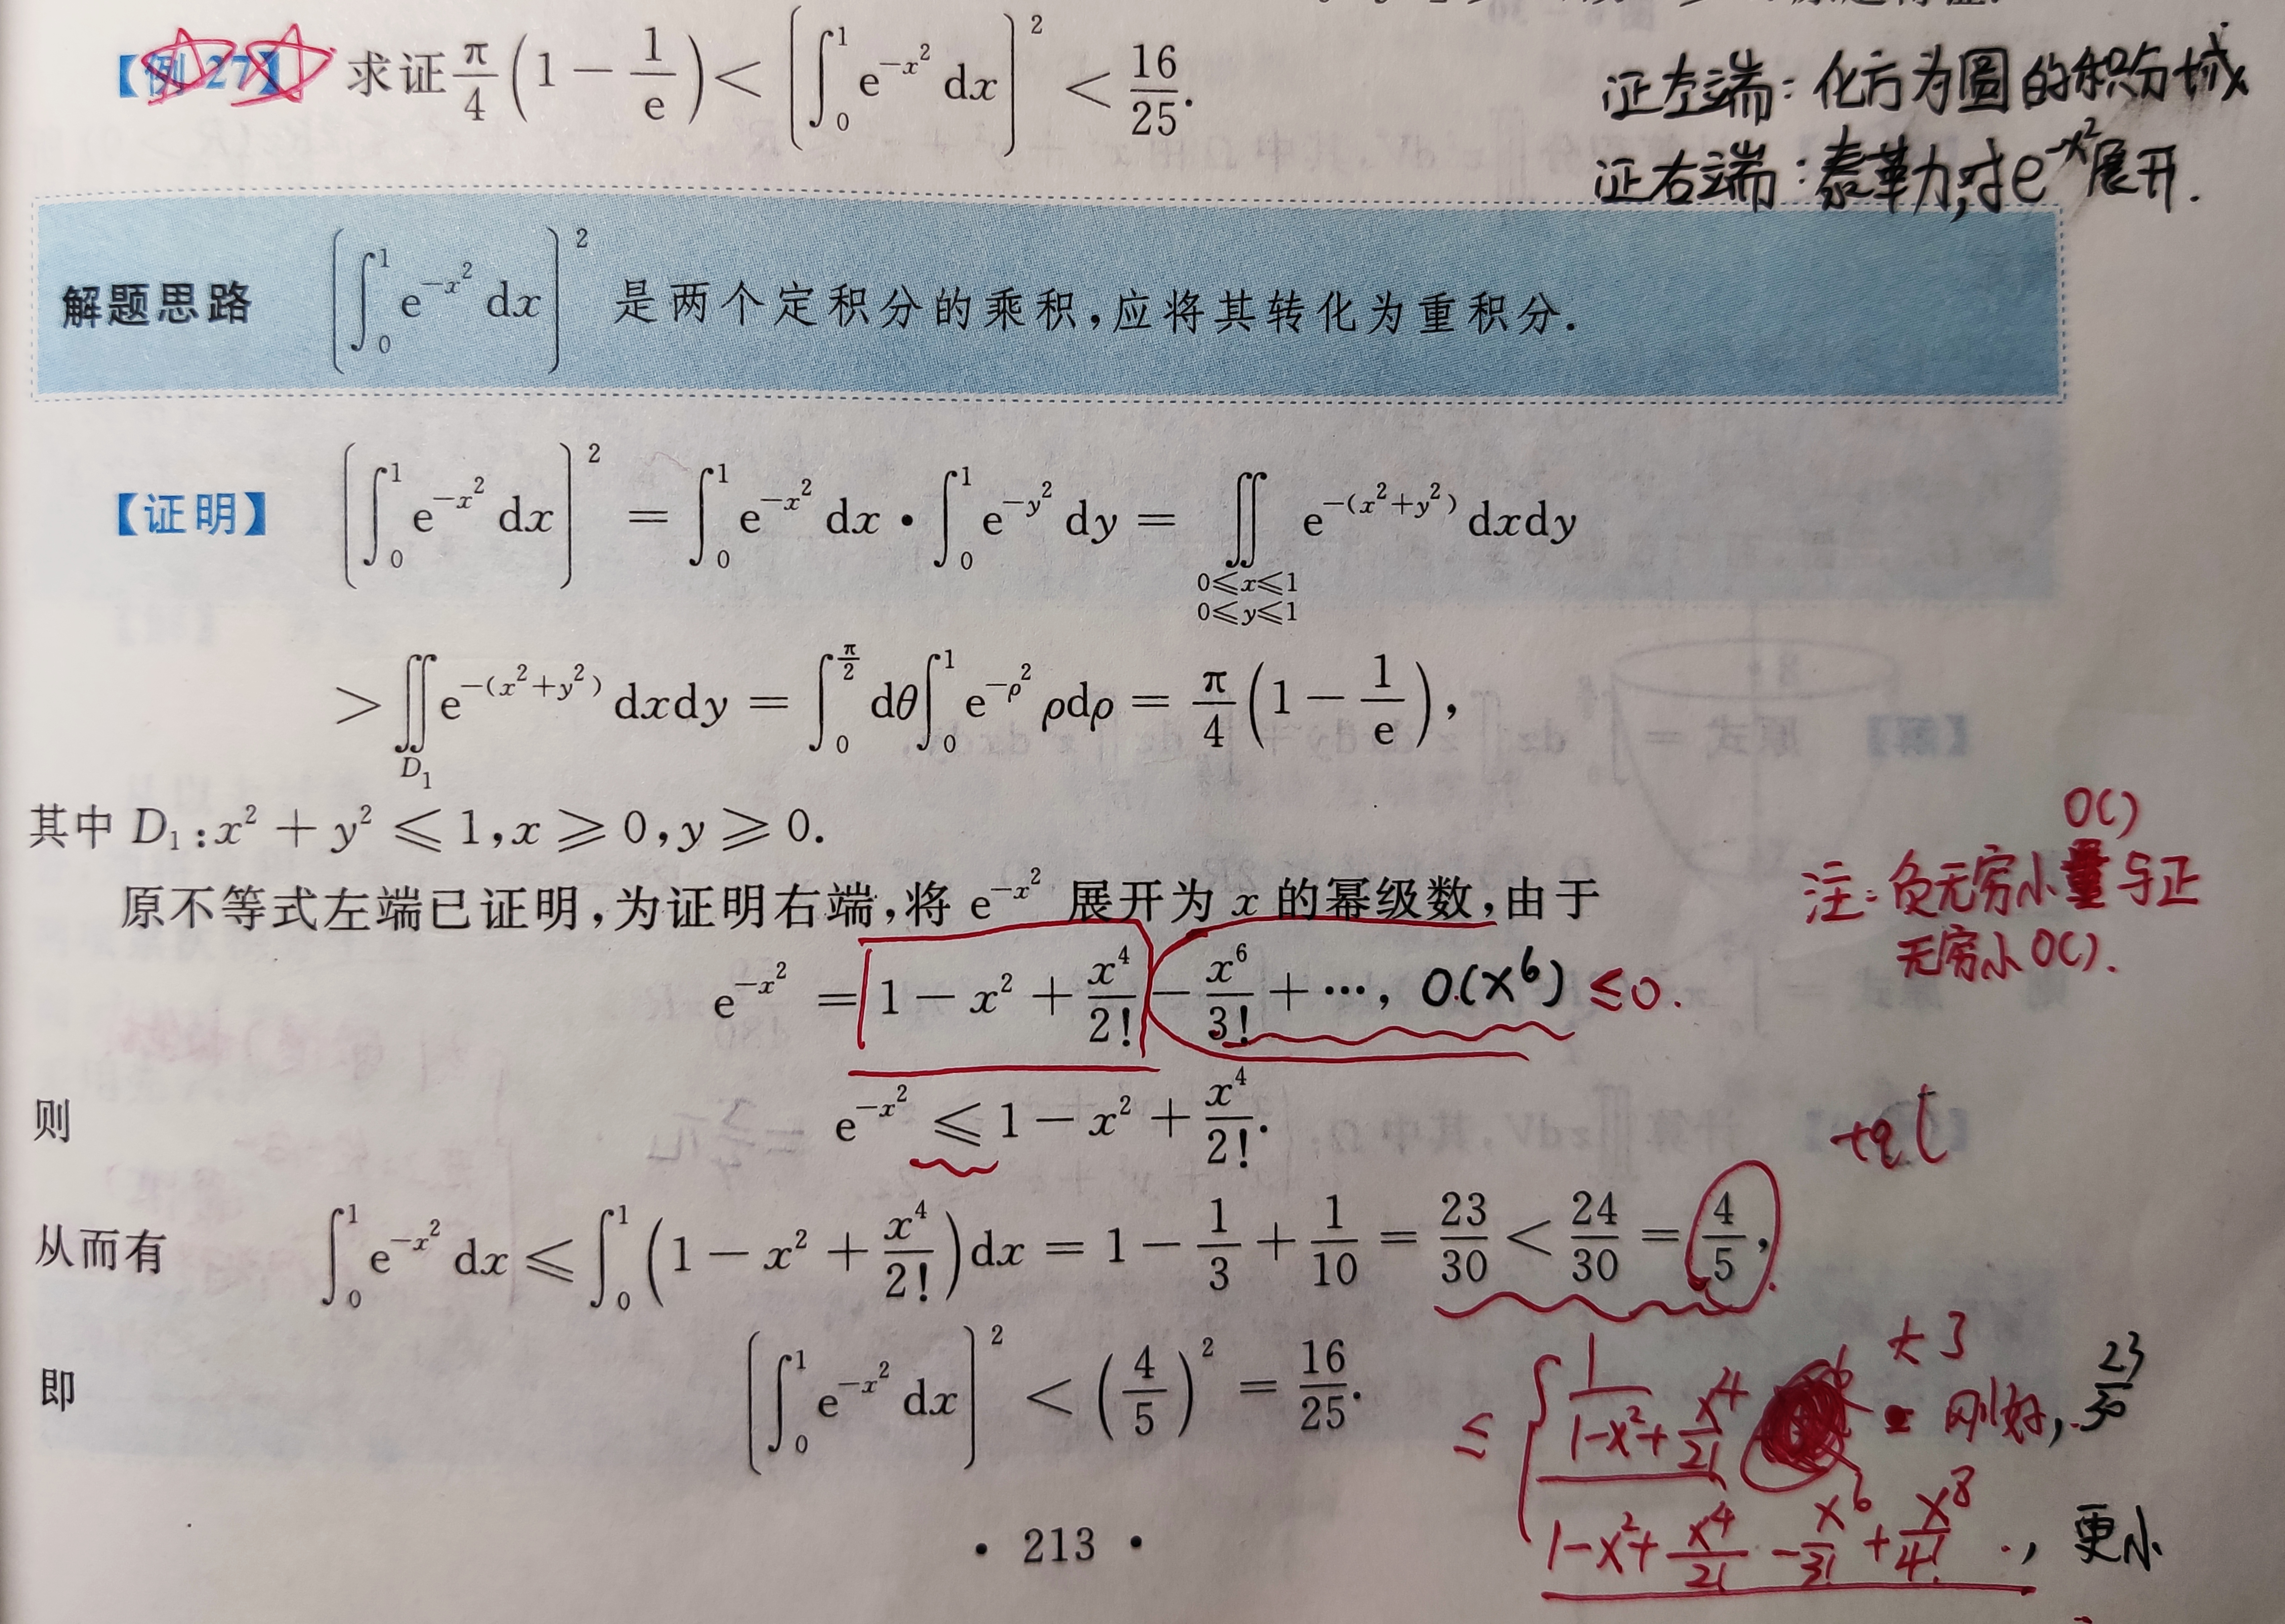 【例 27】 求证 $\frac{\pi}{4}\left(1-\frac{1}{e}\right)<\left[\int_0^1 e^{-x^2}dx\right]^2<\frac{16}{25}.$
证左端：化方为圆的积分域
证右端：泰勒，对 $e^{-x^2}$ 展开.
解题思路 $\left[\int_0^1 e^{-x^2}dx\right]^2$ 是两个定积分的乘积,应将其转化为重积分.
【证明】 $\left[\int_0^1 e^{-x^2}dx\right]^2=\int_0^1 e^{-x^2}dx\cdot\int_0^1 e^{-y^2}dy=\iint\limits_{\substack{0\leqslant x\leqslant 1\\0\leqslant y\leqslant 1}}e^{-(x^2+y^2)}dxdy$
$>\iint\limits_{D_1}e^{-(x^2+y^2)}dxdy=\int_0^{\frac{\pi}{2}}d\theta\int_0^1 e^{-\rho^2}\rho d\rho=\frac{\pi}{4}\left(1-\frac{1}{e}\right),$
其中 $D_1:x^2+y^2\leqslant 1,x\geqslant 0,y\geqslant 0.$
O()
注：负无穷小量与正
无穷小O().
原不等式左端已证明,为证明右端,将 $e^{-x^2}$ 展开为 x 的幂级数,由于
$e^{-x^2}=1-x^2+\frac{x^4}{2!}-\frac{x^6}{3!}+\cdots,$ $O(x^6)\leq 0.$
则 $e^{-x^2}\leqslant 1-x^2+\frac{x^4}{2!}.$
从而有 $\int_0^1 e^{-x^2}dx\leqslant\int_0^1\left(1-x^2+\frac{x^4}{2!}\right)dx=1-\frac{1}{3}+\frac{1}{10}=\frac{23}{30}<\frac{24}{30}=\frac{4}{5},$
即 $\left[\int_0^1 e^{-x^2}dx\right]^2<\left(\frac{4}{5}\right)^2=\frac{16}{25}.$
$\leq$ $1-x^2+\frac{x^4}{2!}$ 刚好, $\frac{23}{30}$
$1-x^2+\frac{x^4}{2!}-\frac{x^6}{3!}+\frac{x^8}{4!}$ , 更小
· 213 ·